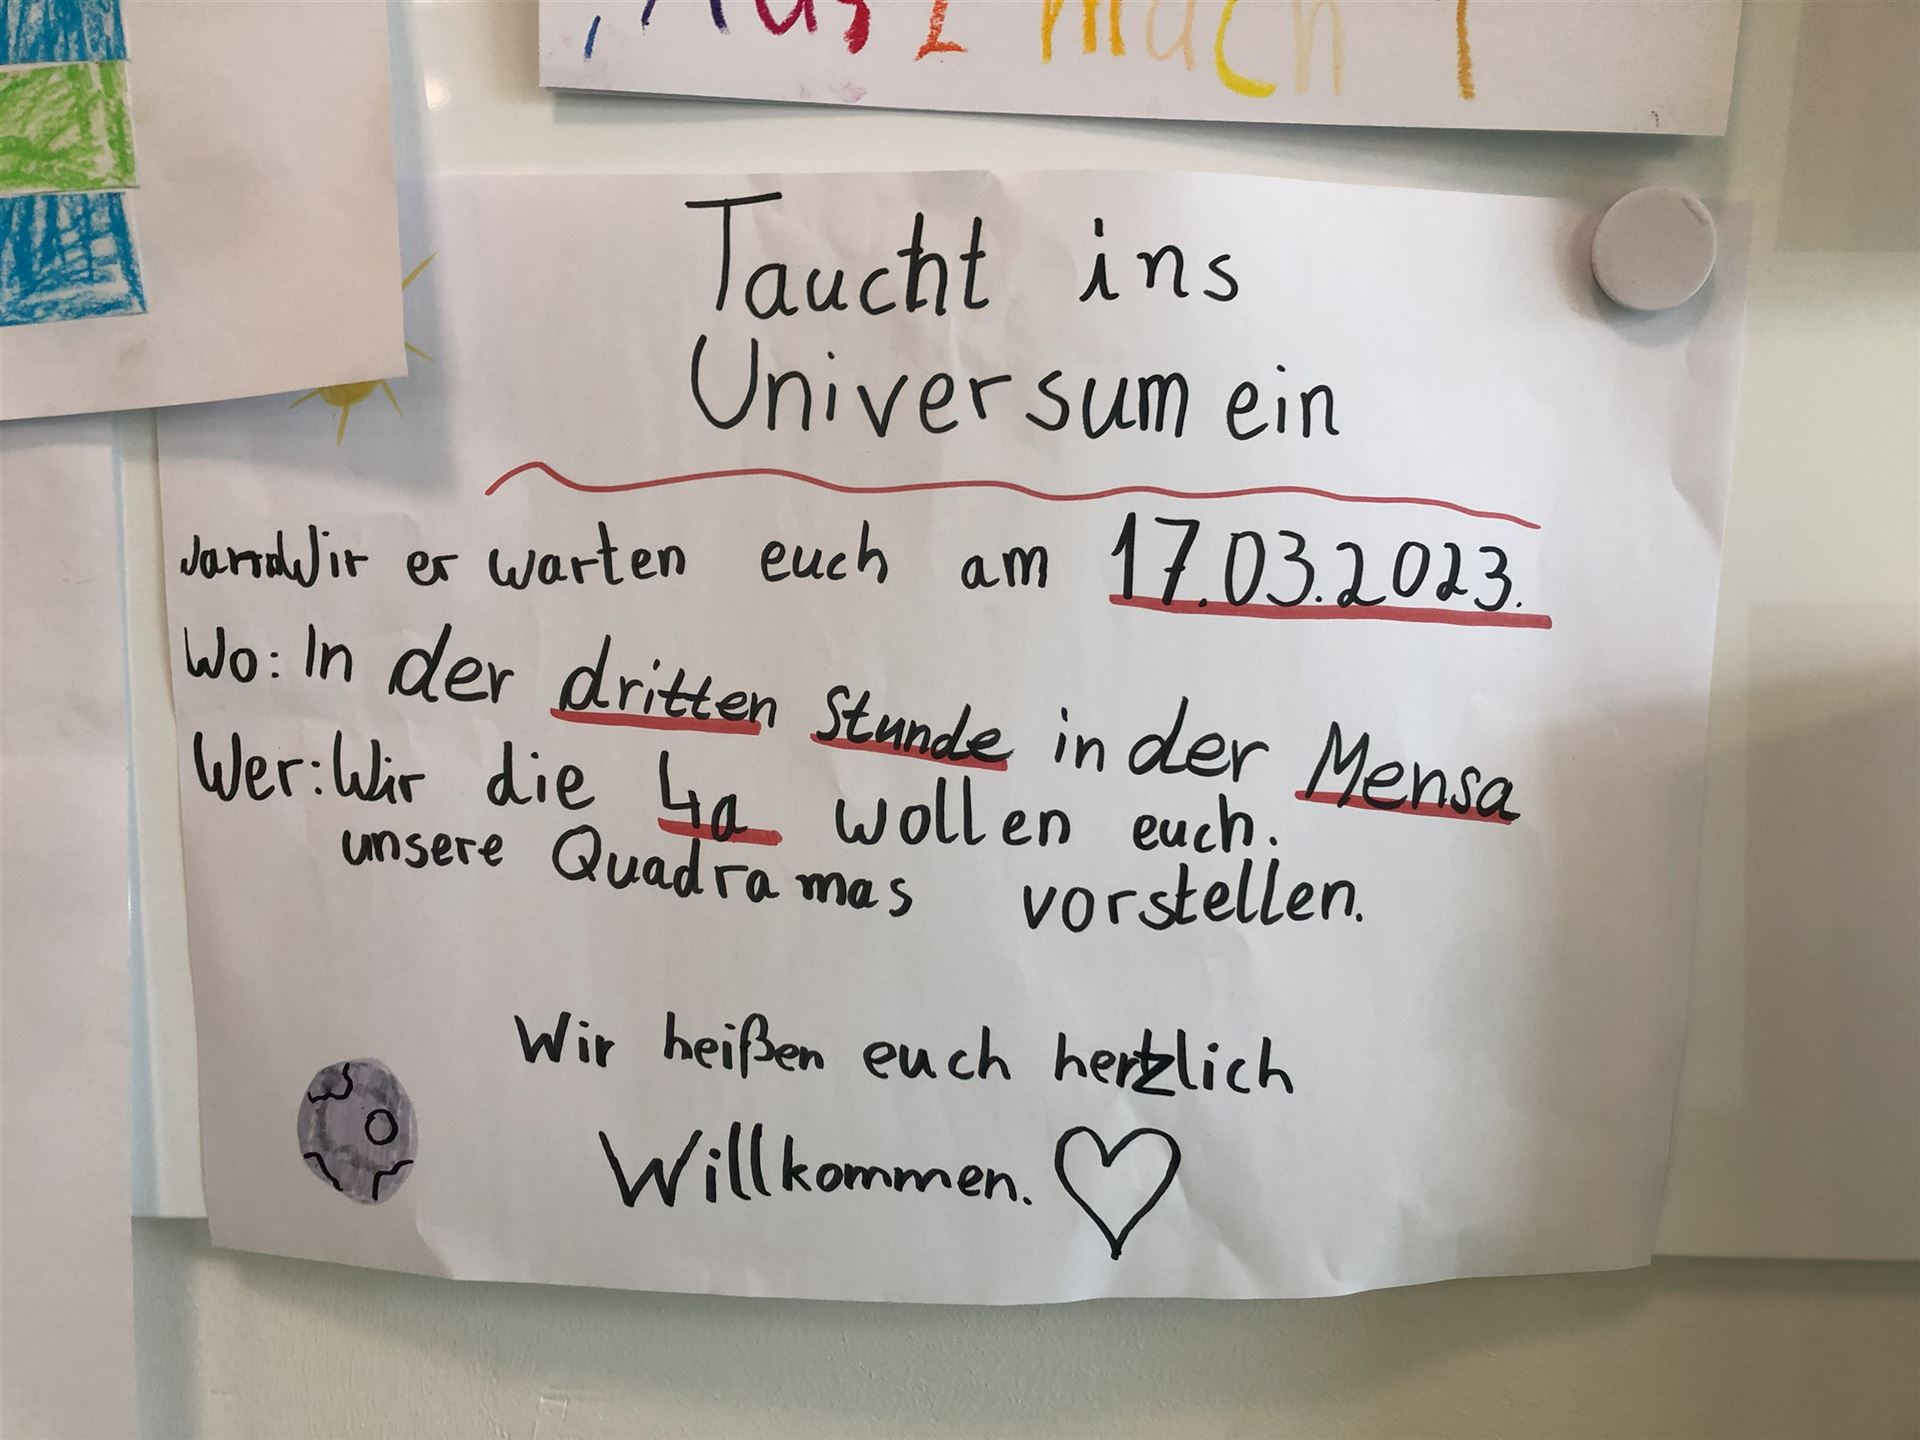 "Aus 2 mach 1
Taucht ins
Universum ein
Wir erwarten euch am 17.03.2023.
Wo: In der dritten Stunde in der Mensa
Wer: Wir die 4a wollen euch.
unsere Quadramas vorstellen.
Wir heißen euch hertzlich
Willkommen.